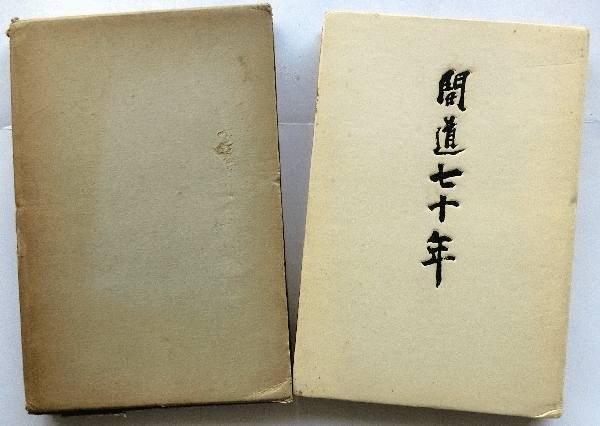 問道七十年